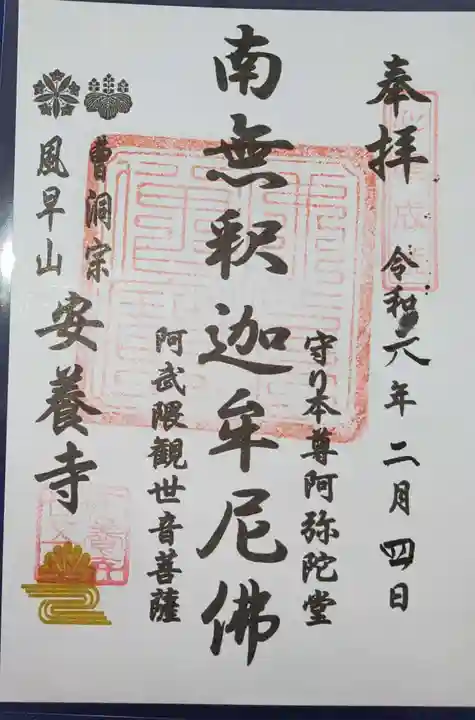 奉拝
令和六年二月四日
守り本尊阿弥陀堂
南無釈迦牟尼佛
阿武隈観世音菩薩
曹洞宗
風早山
安養寺